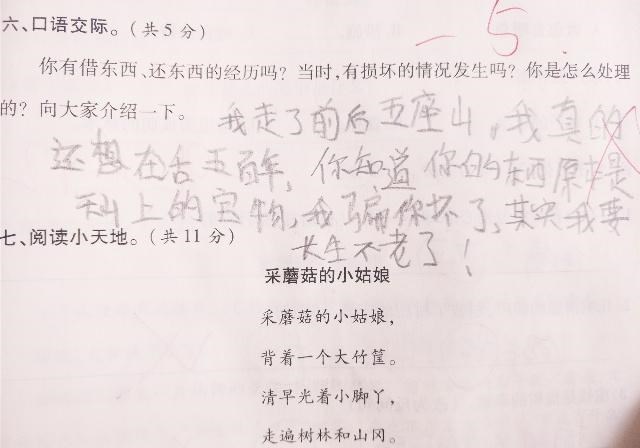 六、口语交际。(共5分)
-5.
你有借东西、还东西的经历吗？当时,有损坏的情况发生吗？你是怎么处理
的？向大家介绍一下。我走了前后五座山,我真的
还想在舌五百年,你知道你的东西原本是
天山上的宝物,我骗你坏了,其实我要
长生不老了！
七、阅读小天地。(共11分)
采蘑菇的小姑娘
采蘑菇的小姑娘,
背着一个大竹筐。
清早光着小脚丫,
走遍树林和山冈。